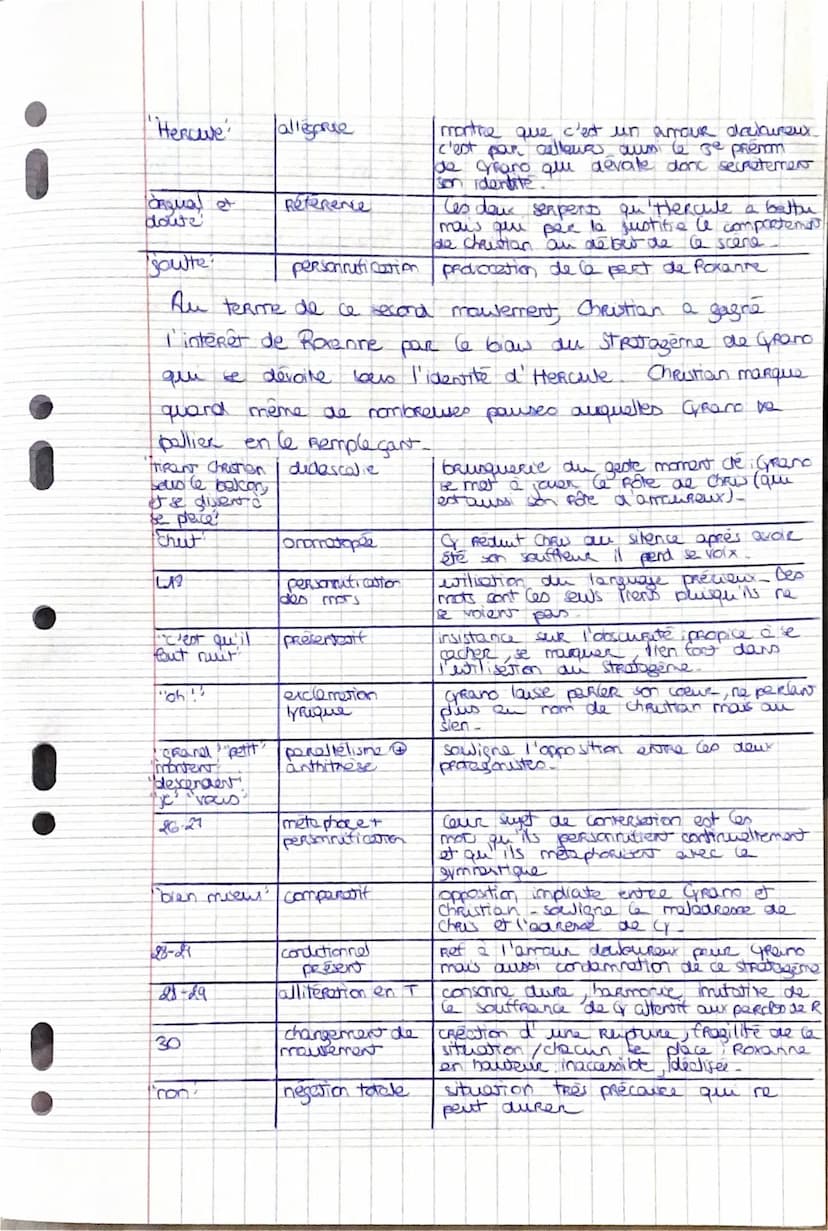 "Hercule" allégorie montre que c'est un amour douloureux
c'est par ailleurs aussi le 3e prénom
de Cyrano qui dévoile donc secrètement
son identité.
orgueil et Référence Les deux serpents qu'Hercule a battu
doute" mais qui par là justifie le comportement
de Christian au début de la scène.
"joute" personnification provocation de la part de Roxanne
Au terme de ce second mouvement, Christian a gagné
l'intérêt de Roxanne par le biais du stratagème de Cyrano
qui se dévoile sous l'identité d'Hercule. Christian marque
quand même de nombreuses pauses auquelles Cyrano va
pallier en le remplaçant.
"tirant Christian didascalie brusquerie du geste moment clé : Cyrano
sous le balcon, se met à jouer le rôle de Chris (qui
et se glissant à est aussi son rôle d'amoureux).
se place"
"Chut" onomatopée Cy réduit Chris au silence après avoir
été son souffleur il perd sa voix.
personnification utilisation du language précieux. Les
des mots mots sont les seuls liens puisqu'ils ne
se voient pas.
"c'est qu'il présentatif insistance sur l'obscurité propice à se
fait nuit" cacher, se masquer, lien fort dans
l'utilisation du stratagème.
"oh !" exclamation Cyrano laisse parler son coeur, ne parlant
lyrique plus au nom de Christian mais au
sien.
"grand" "petit" parallélisme + souligne l'opposition entre les deux
"montent" anthithèse protagonistes.
"descendent"
"je" "vous"
26-27 métaphore + Leur sujet de conversation est les
personnification mot qu'ils personnifient continuellement
et qu'ils métaphorisent avec la
gymnastique
"bien mieux" comparatif opposition implicite entre Cyrano et
Christian - souligne la maladresse de
Chris et l'adresse de Cy.
conditionnel Ref à l'amour douloureux pour Cyrano
présent mais aussi condamnation de ce stratagème
28-29 allitération en T consonne dure, harmonie imitative de
la souffrance de Cy attentif aux paroles de R
30 changement de création d'une rupture, fragilité de la
mouvement situation / chacun sa place ; Roxanne
en hauteur, inaccessible, idéalisée.
"non" négation totale situation très précaire qui ne
peut durer